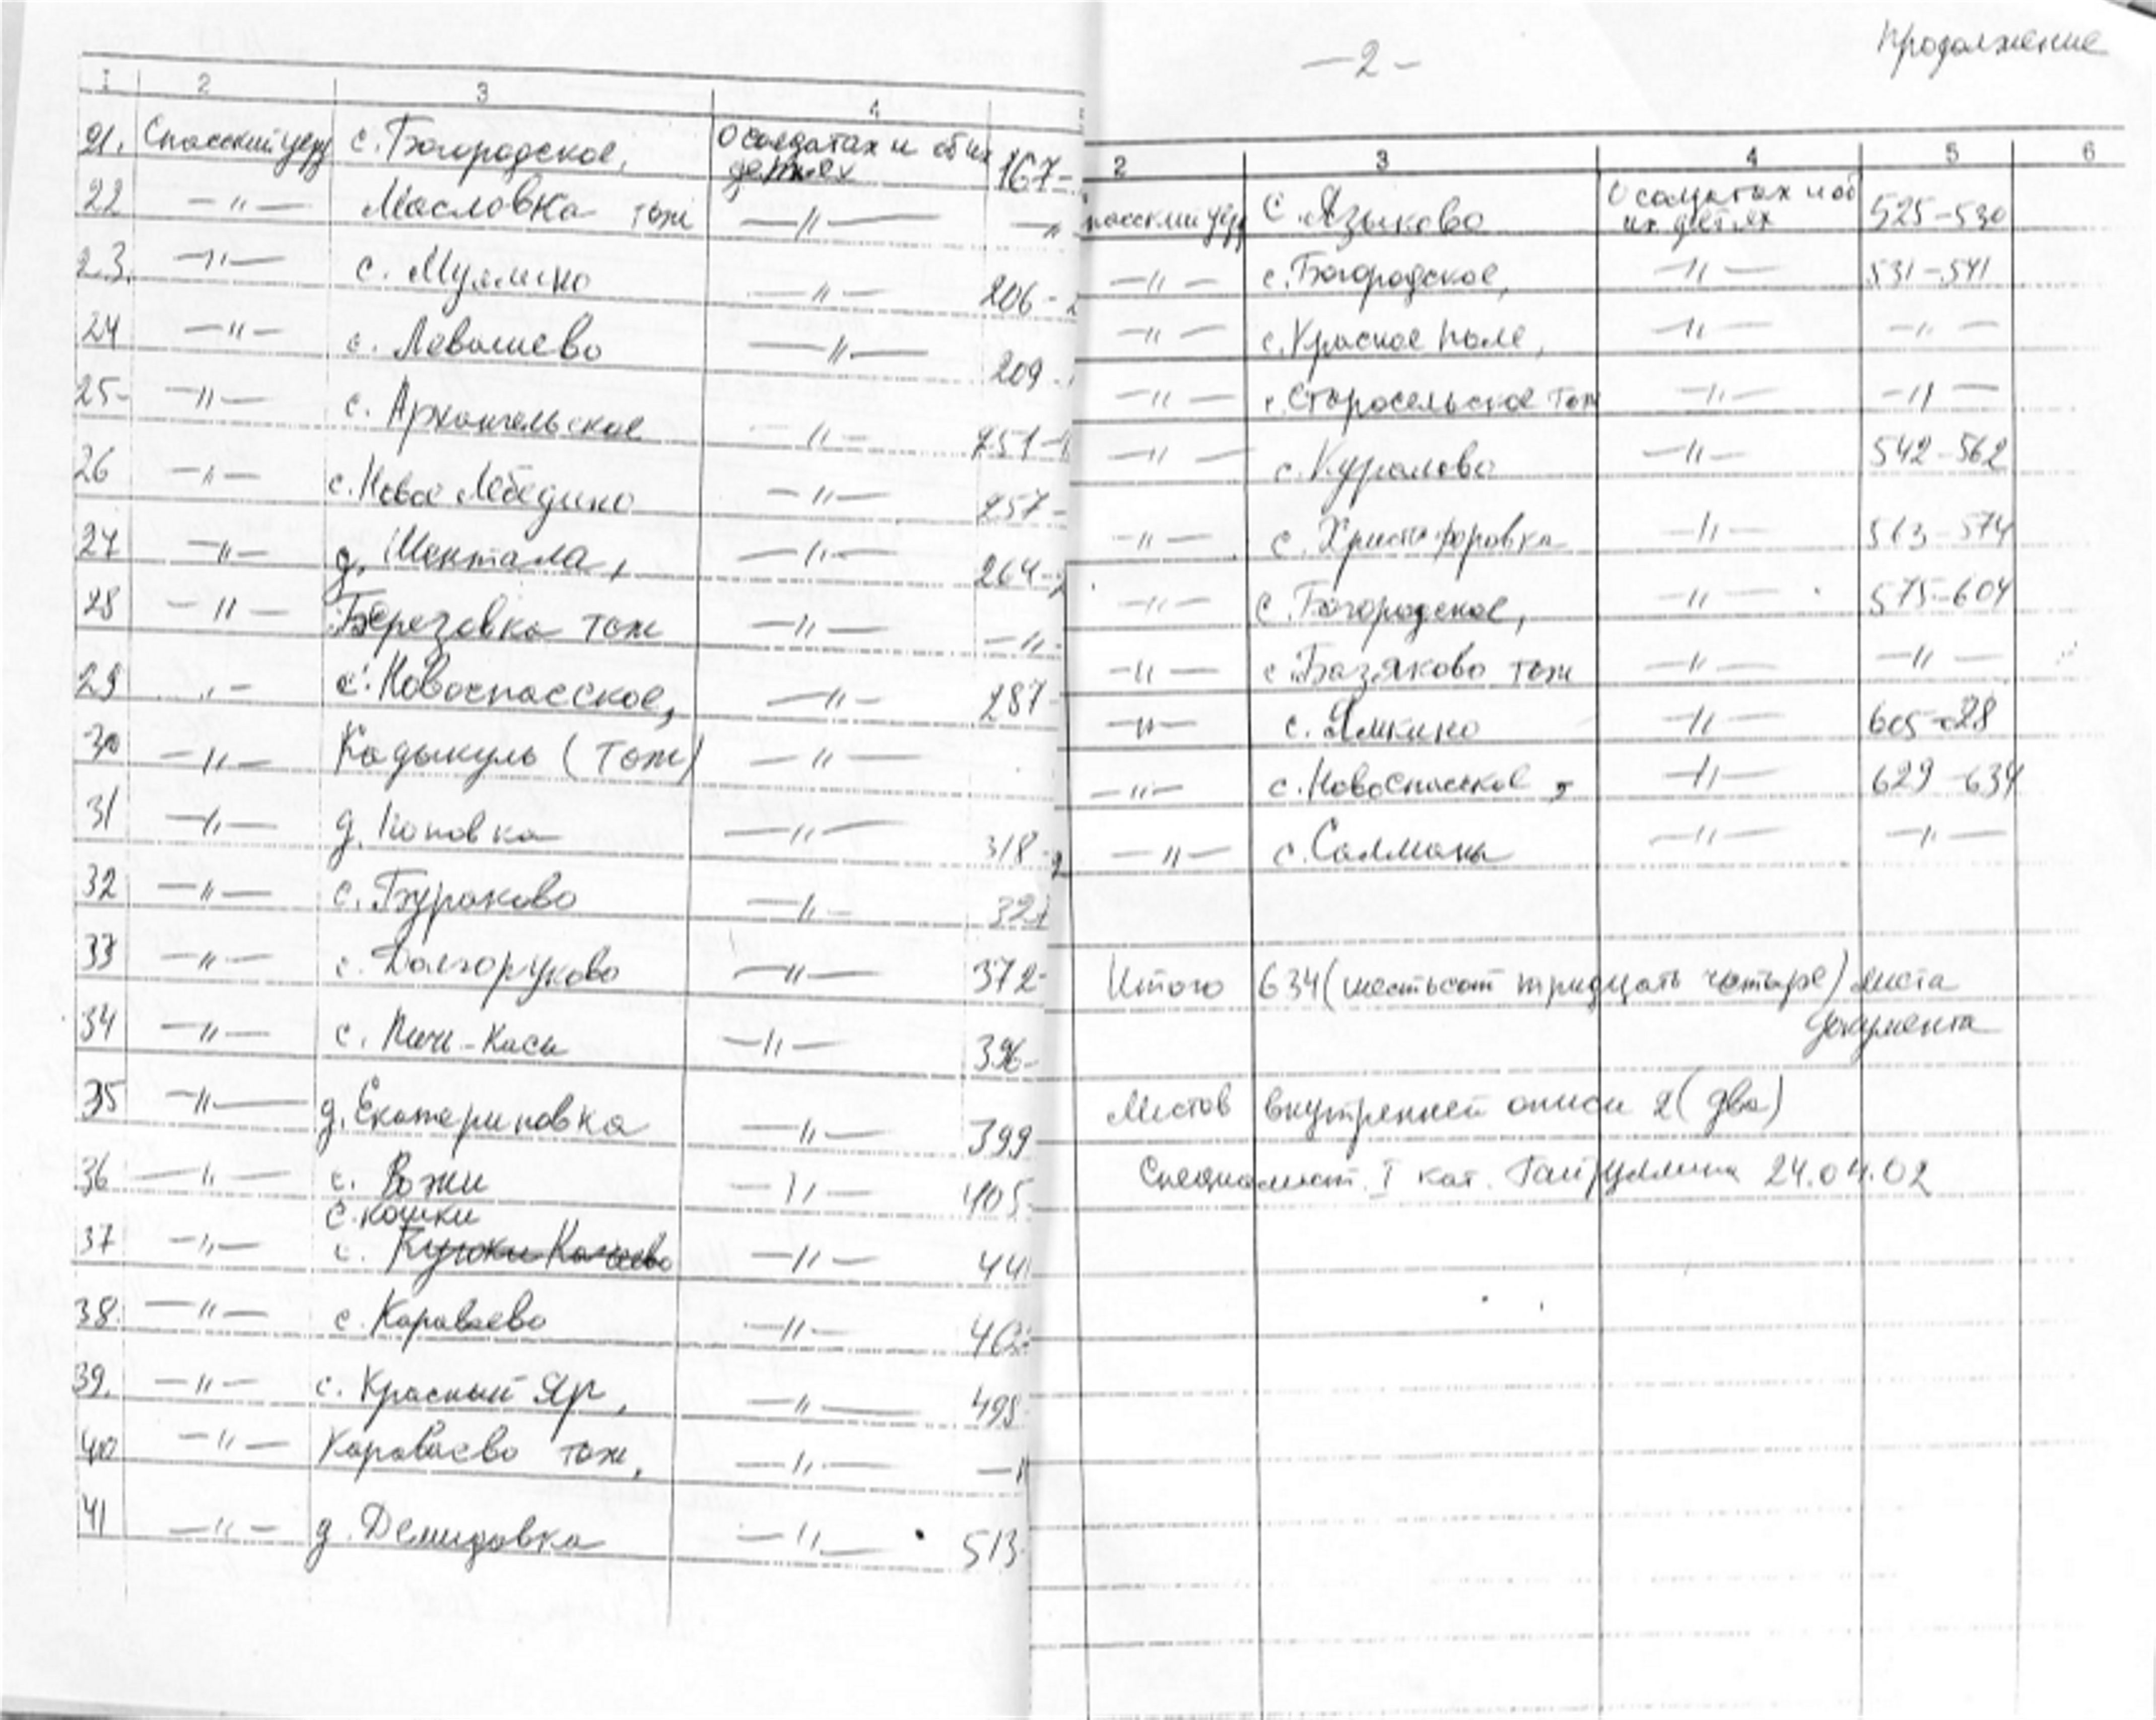 1 2 3 4
21. Спасский уезд с. Богородское, О солдатах и об их детях 167-
22 —"— Масловка тож —"— —"
23. —"— с. Муллино —"— 206-
24 —"— с. Левашево —"— 209-
25- —"— с. Архангельское —"— 251-
26 —"— с. Новое Лебедино —"— 257-
27 —"— д. Шентала, —"— 264-
28 —"— Березовка тож —"— —"-
29 "- с. Новоспасское, —"— 287-
30 —"— Кадыкуль (тож) —"—
31 —"— д. Поповка —"— 318-
32 —"— с. Бураково —"— 327
33 —"— с. Долгоруково —"— 372-
34 —"— с. Пичи-Касы —"— 396-
35 —"— д. Екатериновка —"— 399
36 —"— с. Вожи —"— 405-
с. кошки
37 —"— с. —"— 441
38. —"— с. Караваево —"— 46
39. —"— с. Красный Яр, —"— 498-
40 —"— Караваево тож, —"— —"
41 —"— д. Демидовка —"— 513-
—2— Продолжение
2 3 4 5 6
пасский уезд с. Языково О солдатах и об их детях 525-530
—"— с. Богородское, —"— 531-541
—"— с. Красное поле, —"— —"—
—"— с. Старосельское тож —"— —"—
—"— с. Куралово —"— 542-562
—"— с. Христофоровка —"— 563-574
—"— с. Богородское, —"— 575-604
—"— с. Базяково тож —"— —"—
—"— с. Ямкино —"— 605-628
—"— с. Новоспасское, —"— 629-634
—"— с. Салманы —"— —"—
Итого 634 (шестьсот тридцать четыре) листа
документа
Листов внутренней описи 2 (два)
Специалист I кат. Гайфуллина 24.04.02